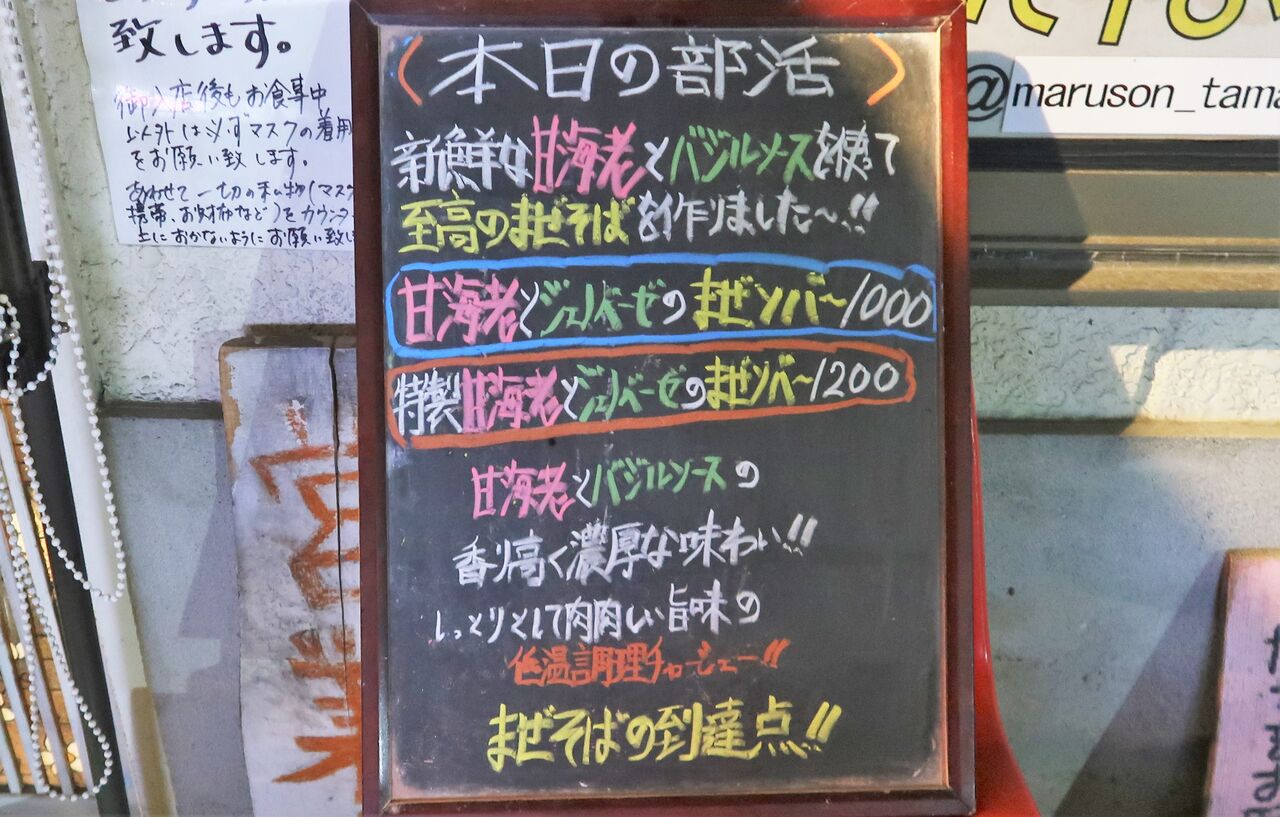 致します。
御入店後もお食事中
以外は必ずマスクの着用
をお願い致します。
あわせて一切の私物(マスク
携帯、お財布など)をカウンター
上におかないようにお願い致し
〈本日の部活〉
新鮮な甘海老とバジルソースを使って
至高のまぜそばを作りました〜!!
甘海老とジェノベーゼのまぜソバ〜1000
特製甘海老とジェノベーゼのまぜソバ〜1200
甘海老とバジルソースの
香り高く濃厚な味わい!!
しっとりとして肉肉しい旨味の
低温調理チャーシュー!!
まぜそばの到達点!!
@maruson_tama